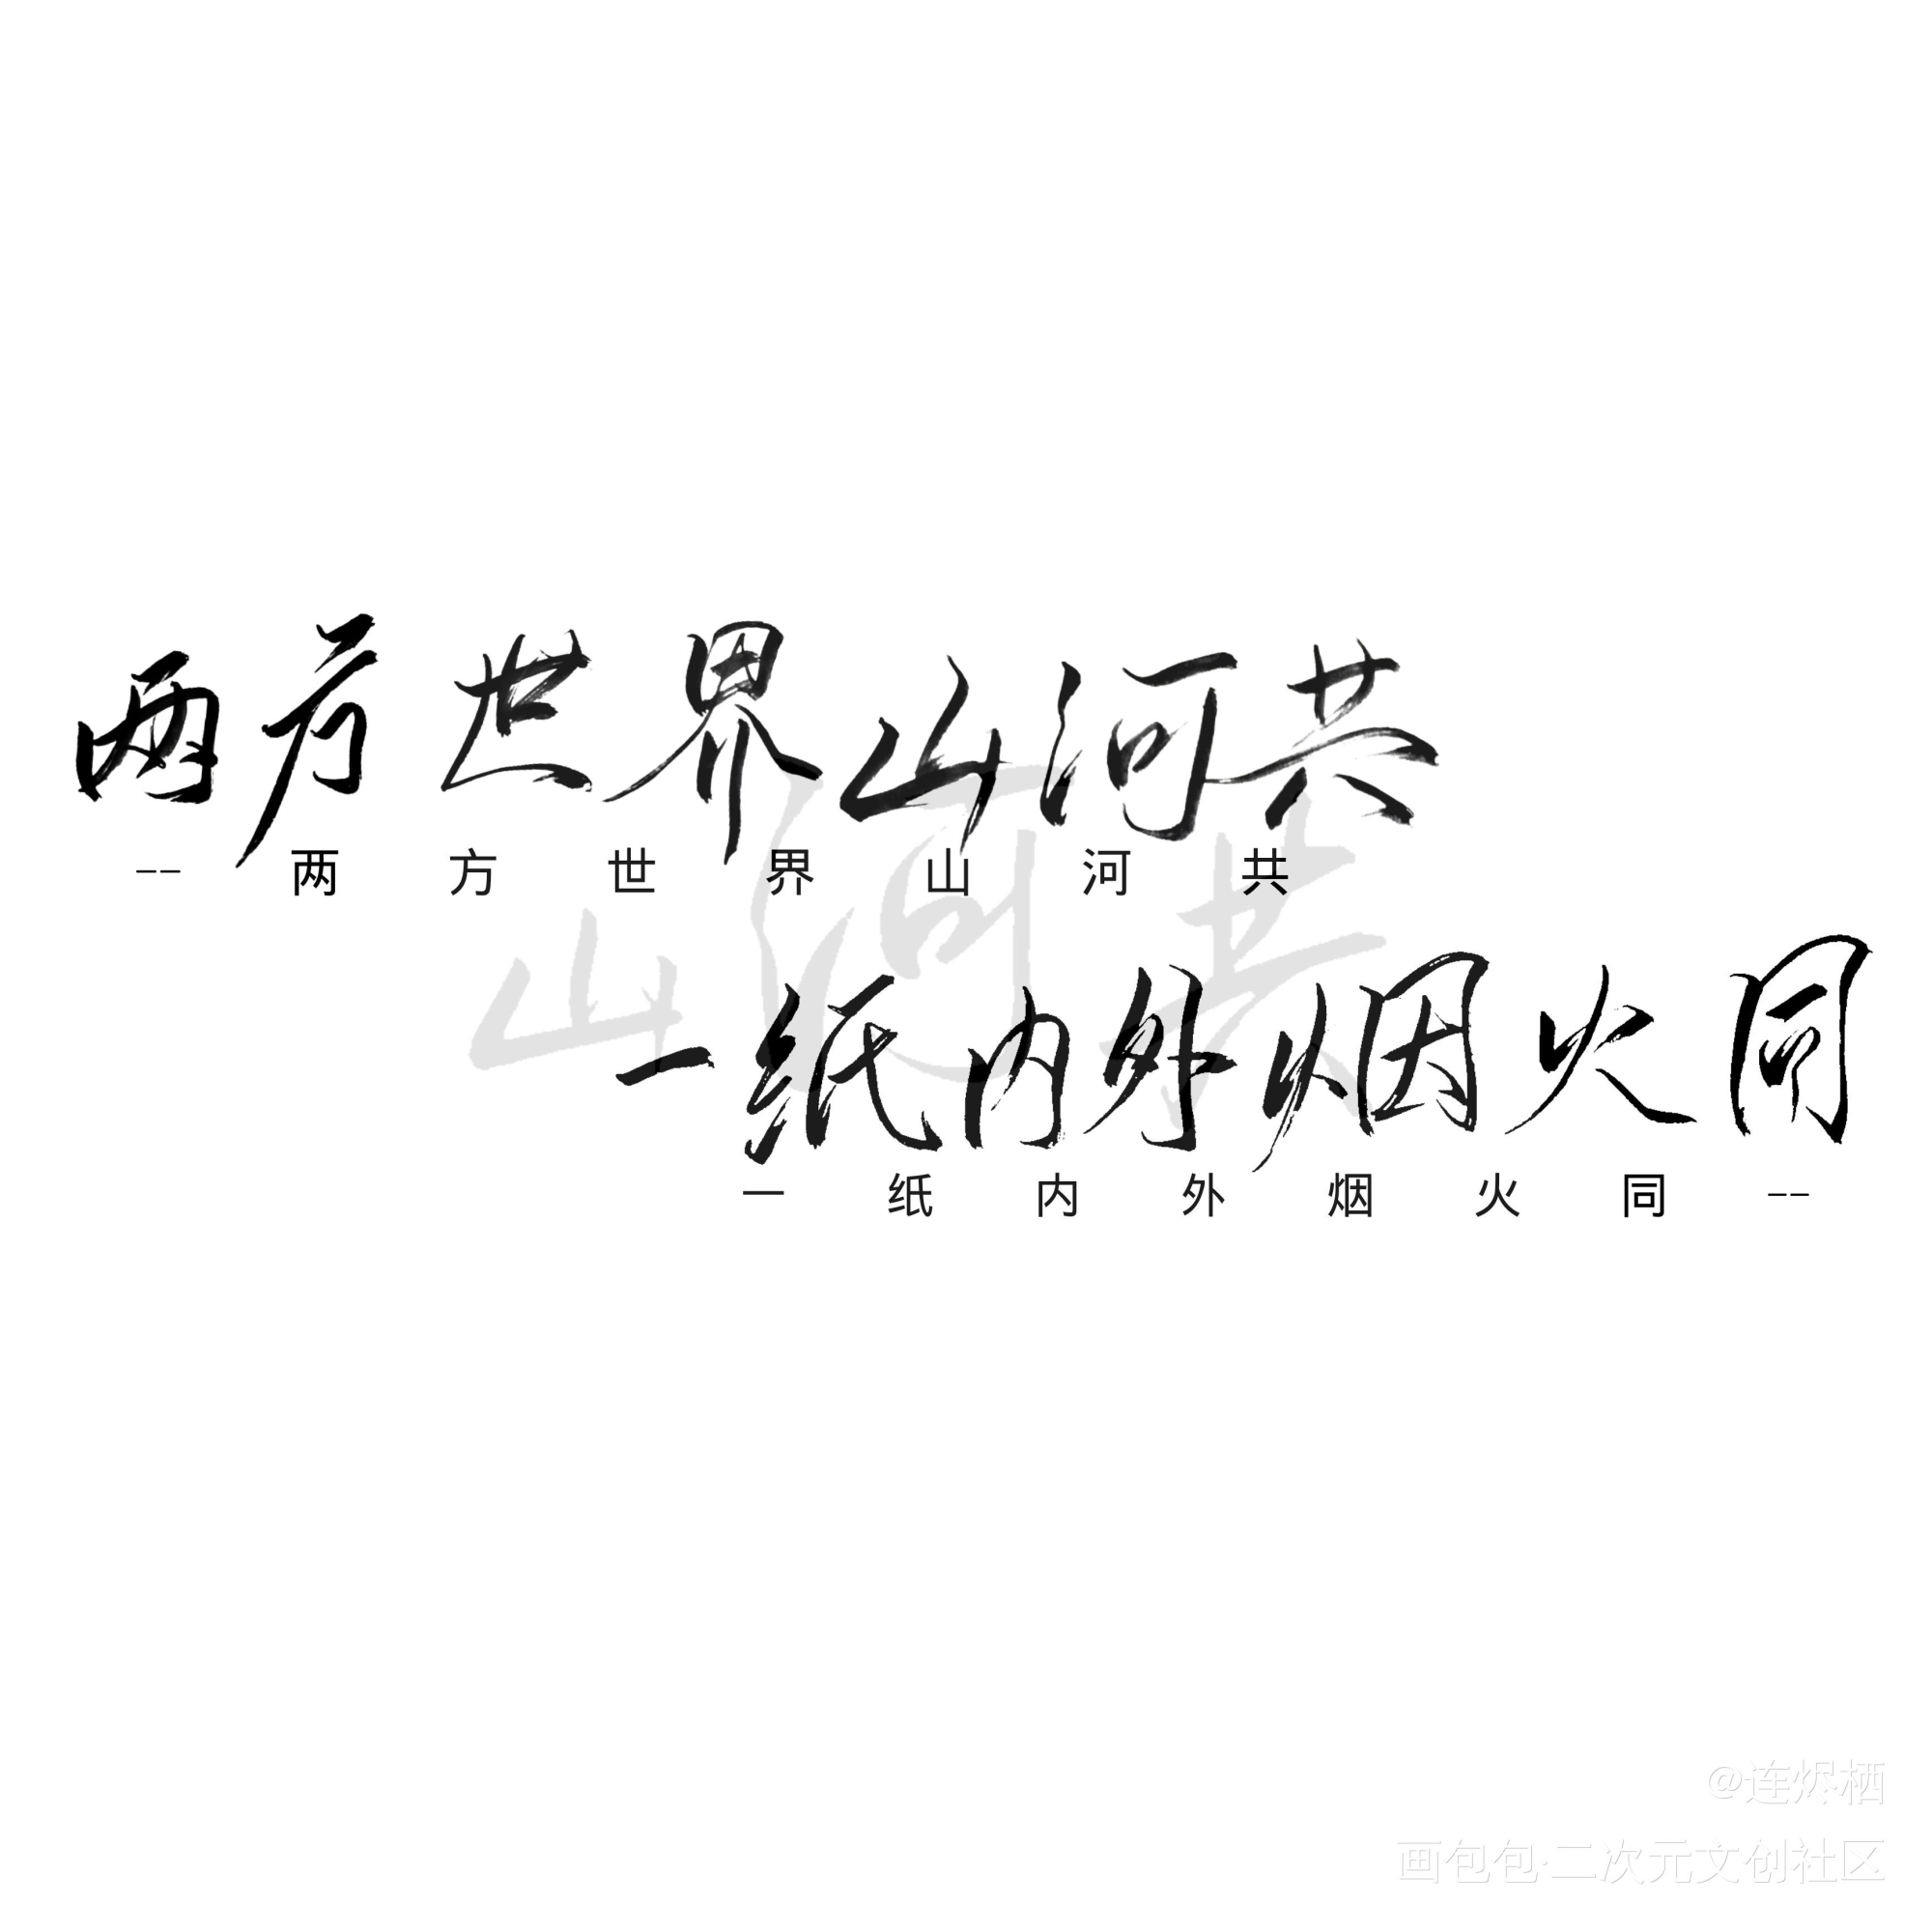 两方世界山河共
-- 两方世界山河共
山河共
一纸内外烟火同
一纸内外烟火同 --
@连烬栖
画包包·二次元文创社区